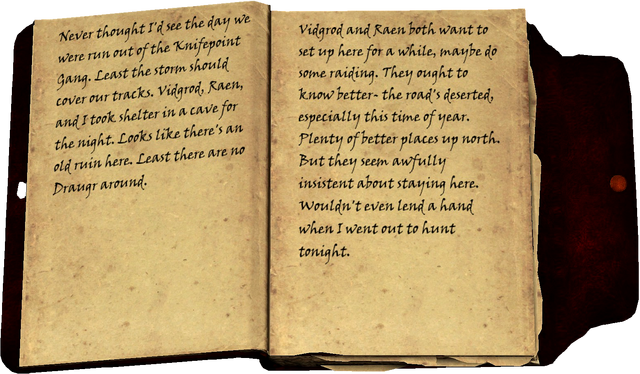 Never thought I'd see the day we
were run out of the Knifepoint
Gang. Least the storm should
cover our tracks. Vidgrod, Raen,
and I took shelter in a cave for
the night. Looks like there's an
old ruin here. Least there are no
Draugr around.
Vidgrod and Raen both want to
set up here for a while, maybe do
some raiding. They ought to
know better- the road's deserted,
especially this time of year.
Plenty of better places up north.
But they seem awfully
insistent about staying here.
Wouldn't even lend a hand
when I went out to hunt
tonight.